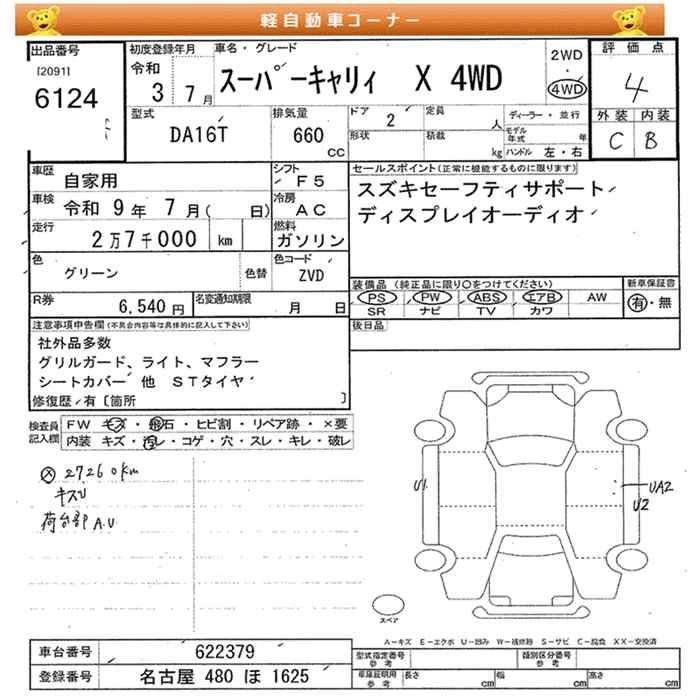 軽自動車コーナー
出品番号
[2091]
6124
初度登録年月
令和
3 7月
車名・グレード
スーパーキャリィ X 4WD
2WD
・
4WD
評価点
4
外装 内装
C B
型式
DA16T
排気量
660
CC
ドア
2
定員
人
形状
積載
kg
ディーラー・並行
モデル年式 年
ハンドル 左・右
車歴
自家用
シフト
F5
車検
令和 9年 7月( 日)
冷房
AC
走行
2万7千000 km
燃料
ガソリン
色
グリーン
色替
色コード
ZVD
R券
6,540円
名変通知期限
月 日
セールスポイント(正常に機能するものに限ります)
スズキセーフティサポート
ディスプレイオーディオ
装備品 (純正品に限り○をつけてください)
PS PW ABS エアB AW
SR ナビ TV カワ
新車保証書
有・無
後日品
注意事項申告欄(不具合内容等は具体的に記入して下さい)
社外品多数
グリルガード、ライト、マフラー
シートカバー 他 STタイヤ
修復歴/有〔箇所 〕
検査員
記入欄
FW キズ・飛石・ヒビ割・リペア跡・×要
内装 キズ・汚レ・コゲ・穴・スレ・キレ・破レ
27260km
キズU
荷台部A.U
U1
UA2
U2
スペア
A-キズ E-エクボ U-凹み W-補修跡 S-サビ C-腐食 XX-交換済
車台番号
622379
登録番号
名古屋 480 ほ 1625
型式指定番号
参考
類別区分番号
参考
車庫証明用
参考
長さ cm 幅 cm 高さ cm